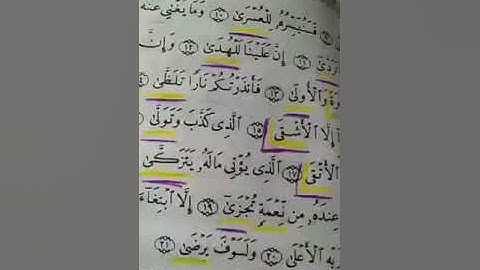 فَسَنُيَسِّرُهُۥ لِلْعُسْرَىٰ ١٠ وَمَا يُغْنِى عَنْهُ
تَرَدَّىٰٓ ١١ إِنَّ عَلَيْنَا لَلْهُدَىٰ ١٢ وَإِنَّ
وَٱلْأُولَىٰ ١٣ فَأَنذَرْتُكُمْ نَارًا تَلَظَّىٰ ١٤
إِلَّا ٱلْأَشْقَى ١٥ ٱلَّذِى كَذَّبَ وَتَوَلَّىٰ
ٱلْأَتْقَى ١٧ ٱلَّذِى يُؤْتِى مَالَهُۥ يَتَزَكَّىٰ
عِندَهُۥ مِن نِّعْمَةٍ تُجْزَىٰٓ ١٩ إِلَّا ٱبْتِغَآءَ
رَبِّهِ ٱلْأَعْلَىٰ ٢٠ وَلَسَوْفَ يَرْضَىٰ ٢١